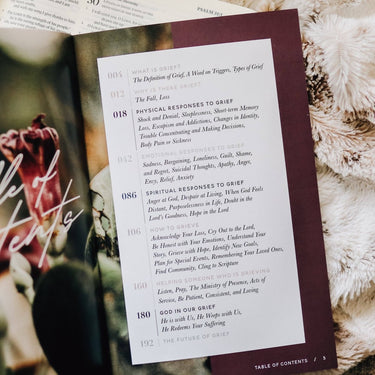 PSALM 119
30
004 WHAT IS GRIEF?
The Definition of Grief, A Word on Triggers, Types of Grief
012 WHY IS THERE GRIEF?
The Fall, Loss
018 PHYSICAL RESPONSES TO GRIEF
Shock and Denial, Sleeplessness, Short-term Memory
Loss, Escapism and Addictions, Changes in Identity,
Trouble Concentrating and Making Decisions,
Body Pain or Sickness
042 EMOTIONAL RESPONSES TO GRIEF
Sadness, Bargaining, Loneliness, Guilt, Shame,
and Regret, Suicidal Thoughts, Apathy, Anger,
Envy, Relief, Anxiety
086 SPIRITUAL RESPONSES TO GRIEF
Anger at God, Despair at Living, When God Feels
Distant, Purposelessness in Life, Doubt in the
Lord's Goodness, Hope in the Lord
106 HOW TO GRIEVE
Acknowledge Your Loss, Cry Out to the Lord,
Be Honest with Your Emotions, Understand Your
Story, Grieve with Hope, Identify New Goals,
Plan for Special Events, Remembering Your Loved Ones,
Find Community, Cling to Scripture
160 HELPING SOMEONE WHO IS GRIEVING
Listen, Pray, The Ministry of Presence, Acts of
Service, Be Patient, Consistent, and Loving
180 GOD IN OUR GRIEF
He is with Us, He Weeps with Us,
He Redeems Your Suffering
192 THE FUTURE OF GRIEF
TABLE OF CONTENTS / 3
le of
ntents